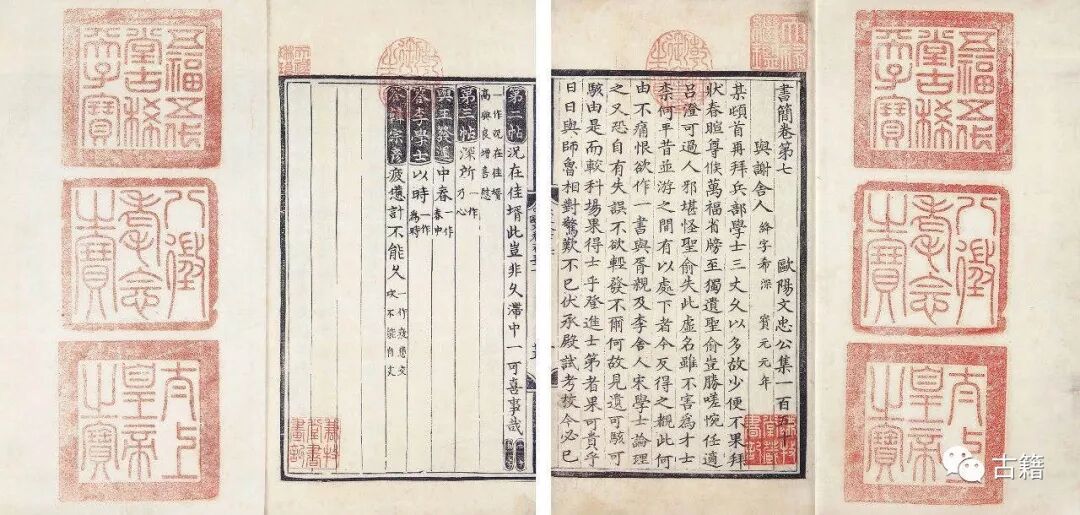 五福五代
堂古稀
天子寶
八徵
耄念
之寶
太上
皇帝
之寶
書簡卷第七 歐陽文忠公集一百五十
與謝舍人 絳字希深 寶元元年
某頓首再拜兵部學士三丈久以多故少便不果拜
狀春暄尊候萬福省牓至獨遺聖俞豈勝嗟惋任適
呂澄可過人邪堪怪聖俞失此虛名雖不害為才士
柰何平昔並游之間有以處下者今反得之覩此何
由不痛恨欲作一書與胥親及李舍人宋學士論理
之又恐自有失誤不欲輕發不爾何故見遺可駭可
駭由是而較科場果得士乎登進士第者果可貴乎
日日與師魯相對驚歎不已伏承殿試考校今必已
第二帖 況在佳壻此豈非久滯中一可喜事哉
一作況在佳壻
高興良增喜慰
第三帖 深所 一作乃心
與王發運 中春 一作春中
答李學士 以時 一作為時
疲憊計不能久 一作疲憊交攻不能自支
謙牧
堂書
畫記
五福五代
堂古稀
天子寶
八徵
耄念
之寶
太上
皇帝
之寶
古籍